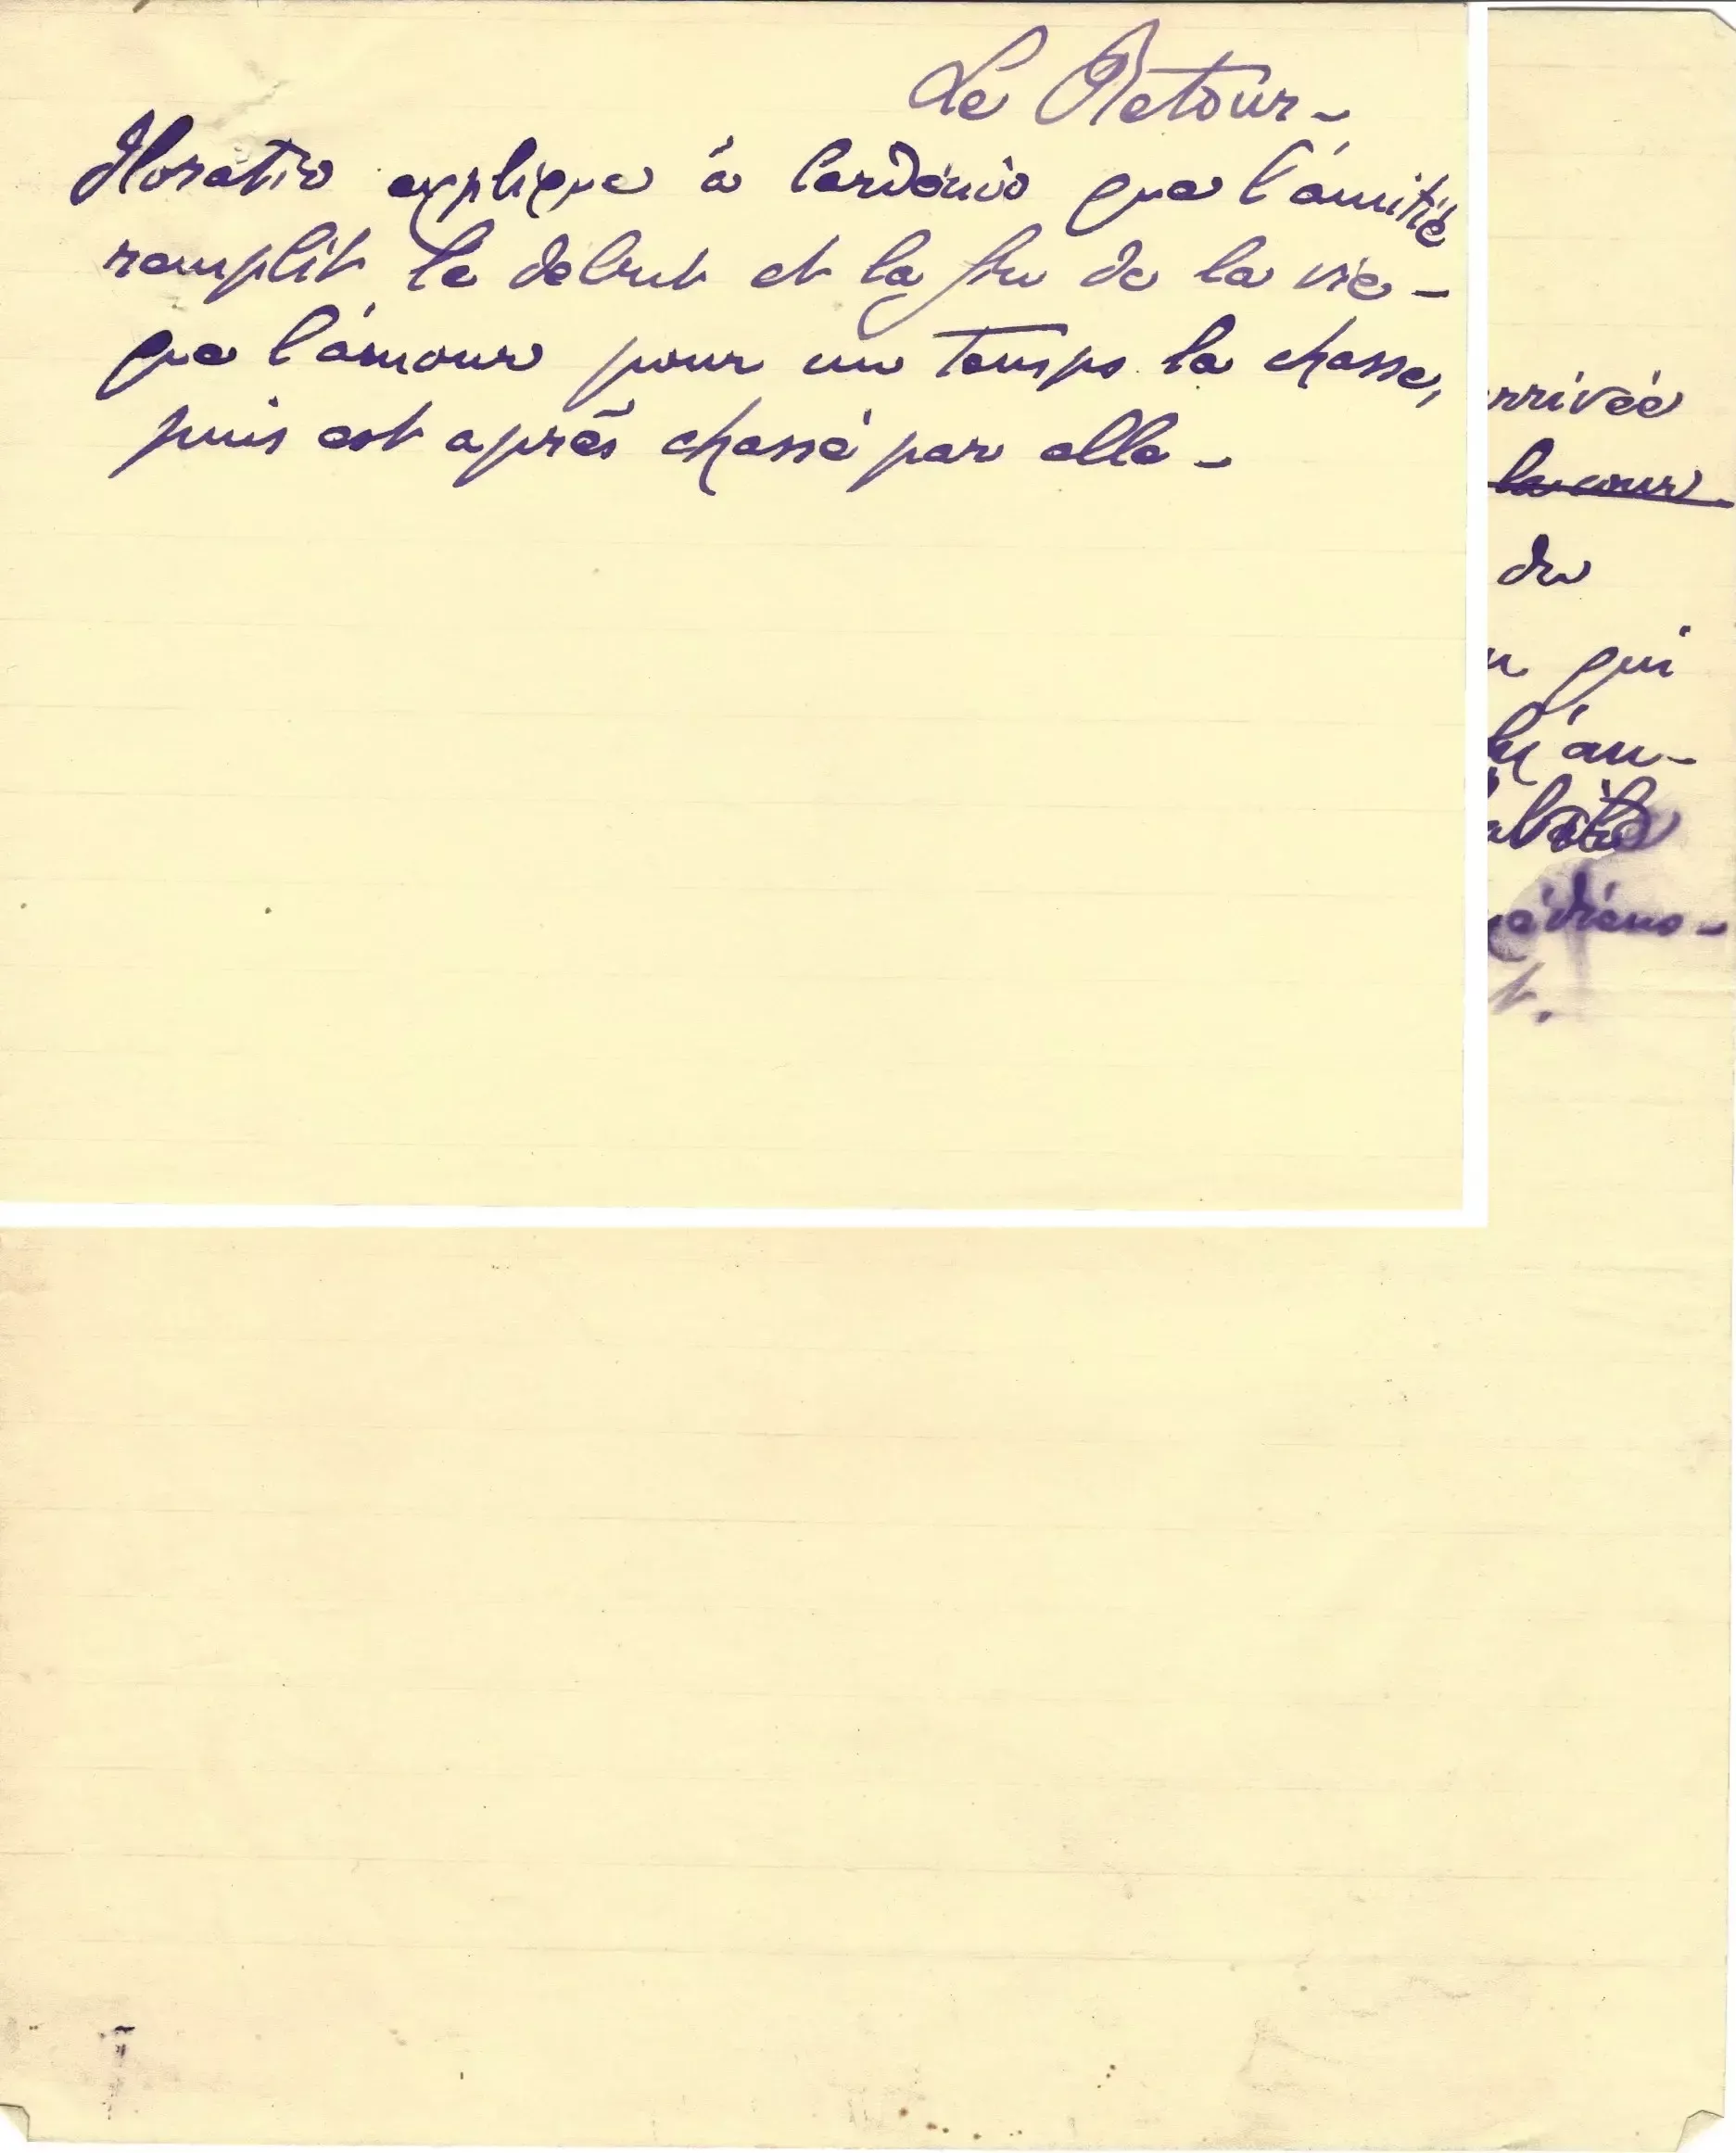 Le Retour -
Horatio explique à Cardenio que l'amitié
remplit le debut et la fin de la vie -
que l'amour pour un temps la chasse,
puis est après chassé par elle -
rrivée
la cour
du
qui